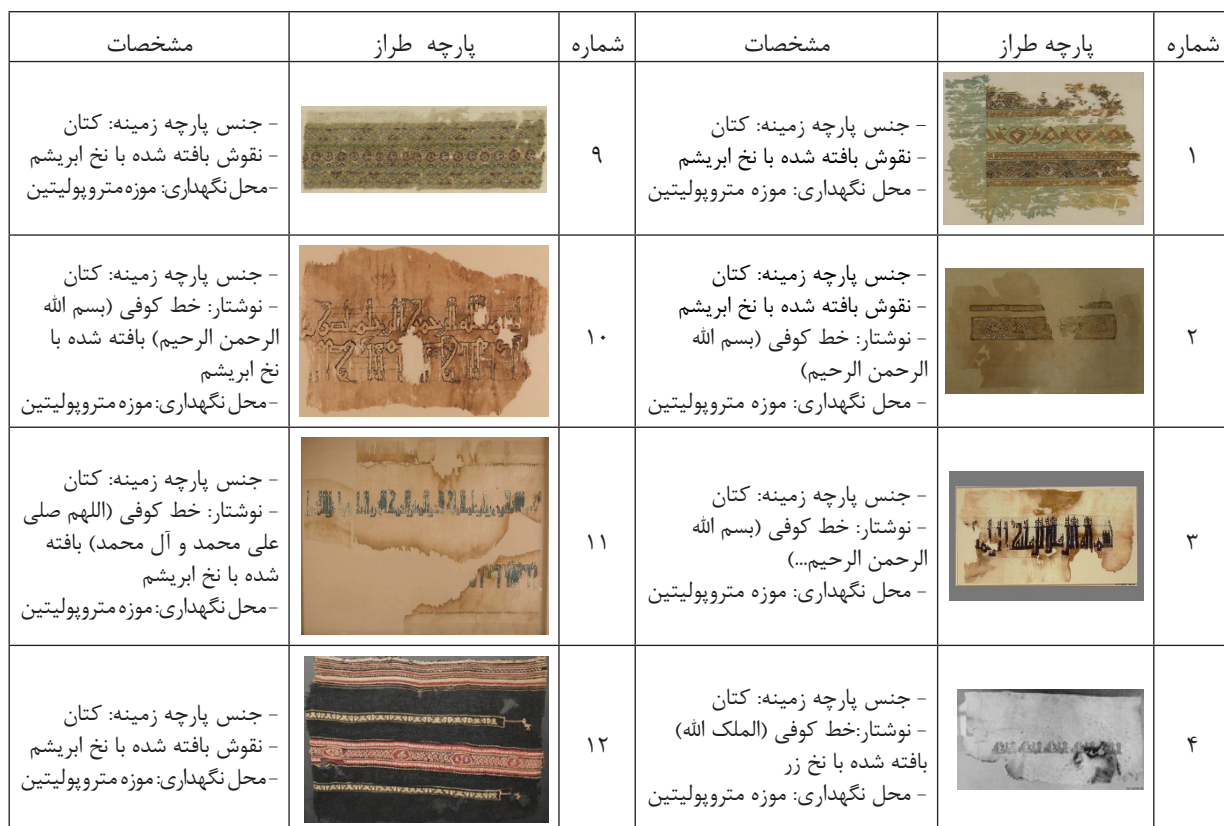 شماره پارچه طراز مشخصات شماره پارچه طراز مشخصات
۱
- جنس پارچه زمینه: کتان
- نقوش بافته شده با نخ ابریشم
- محل نگهداری: موزه متروپولیتین
۹
- جنس پارچه زمینه: کتان
- نقوش بافته شده با نخ ابریشم
-محل نگهداری: موزه متروپولیتین
۲
- جنس پارچه زمینه: کتان
- نقوش بافته شده با نخ ابریشم
- نوشتار: خط کوفی (بسم الله
الرحمن الرحیم)
- محل نگهداری: موزه متروپولیتین
۱۰
- جنس پارچه زمینه: کتان
- نوشتار: خط کوفی (بسم الله
الرحمن الرحیم) بافته شده با
نخ ابریشم
-محل نگهداری: موزه متروپولیتین
۳
- جنس پارچه زمینه: کتان
- نوشتار: خط کوفی (بسم الله
الرحمن الرحیم...)
- محل نگهداری: موزه متروپولیتین
۱۱
- جنس پارچه زمینه: کتان
- نوشتار: خط کوفی (اللهم صلی
علی محمد و آل محمد) بافته
شده با نخ ابریشم
-محل نگهداری: موزه متروپولیتین
۴
- جنس پارچه زمینه: کتان
- نوشتار:خط کوفی (الملک الله)
بافته شده با نخ زر
- محل نگهداری: موزه متروپولیتین
۱۲
- جنس پارچه زمینه: کتان
- نقوش بافته شده با نخ ابریشم
-محل نگهداری: موزه متروپولیتین